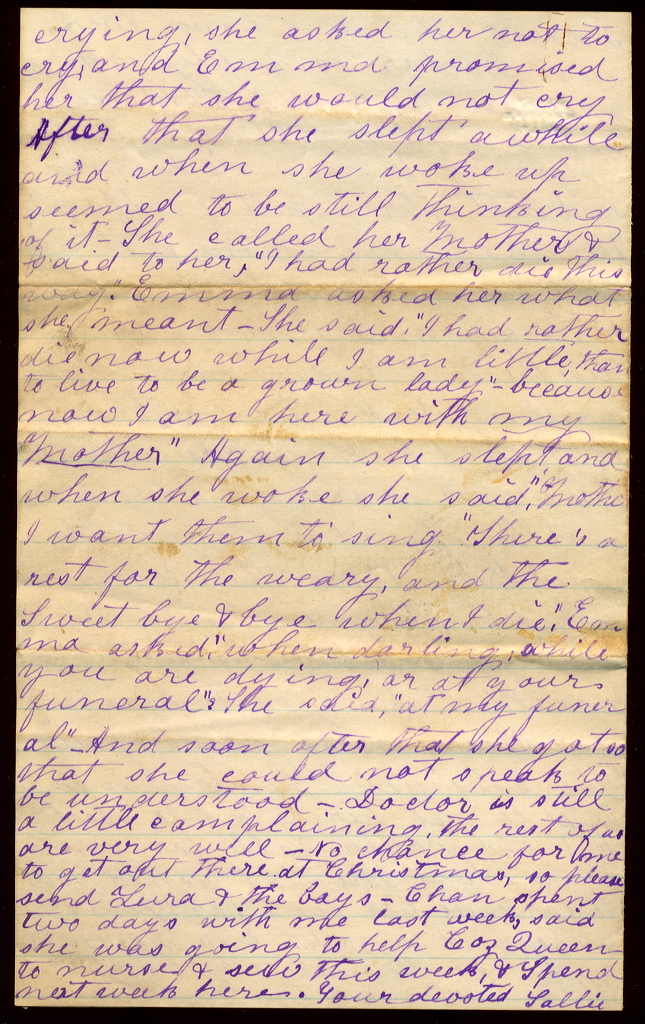 crying, she asked her not to
cry, and Emma promised
her that she would not cry
After that she slept awhile
and when she woke up
seemed to be still thinking
of it - She called her Mother &
said to her, "I had rather die this
way". Emma asked her what
she meant - She said, "I had rather
die now while I am little, than
to live to be a grown lady" - because
now I am here with my
Mother" Again she slept, and
when she woke she said, "Mothe
I want them to sing "There's a
rest for the weary, and the
Sweet bye & bye when I die." Em
ma asked, "when darling, while
you are dying, or at yours
funeral"? She said, "at my funer
al" - And soon after that she got so
that she could not speak to
be understood - Doctor is still
a little complaining, the rest of us
are very well - No chance for me
to get out there at Christmas, so please
send Zura & the boys - Chan spent
two days with me last week, said
she was going to help Coz Queen
to nurse & sew this week, & Spend
next week here. Your devoted Sallie